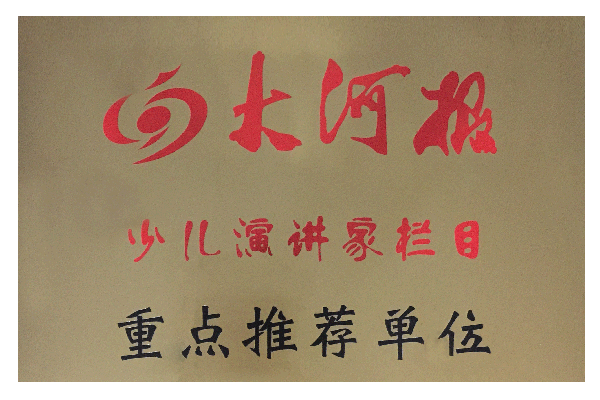 大河报
少儿演讲家栏目
重点推荐单位